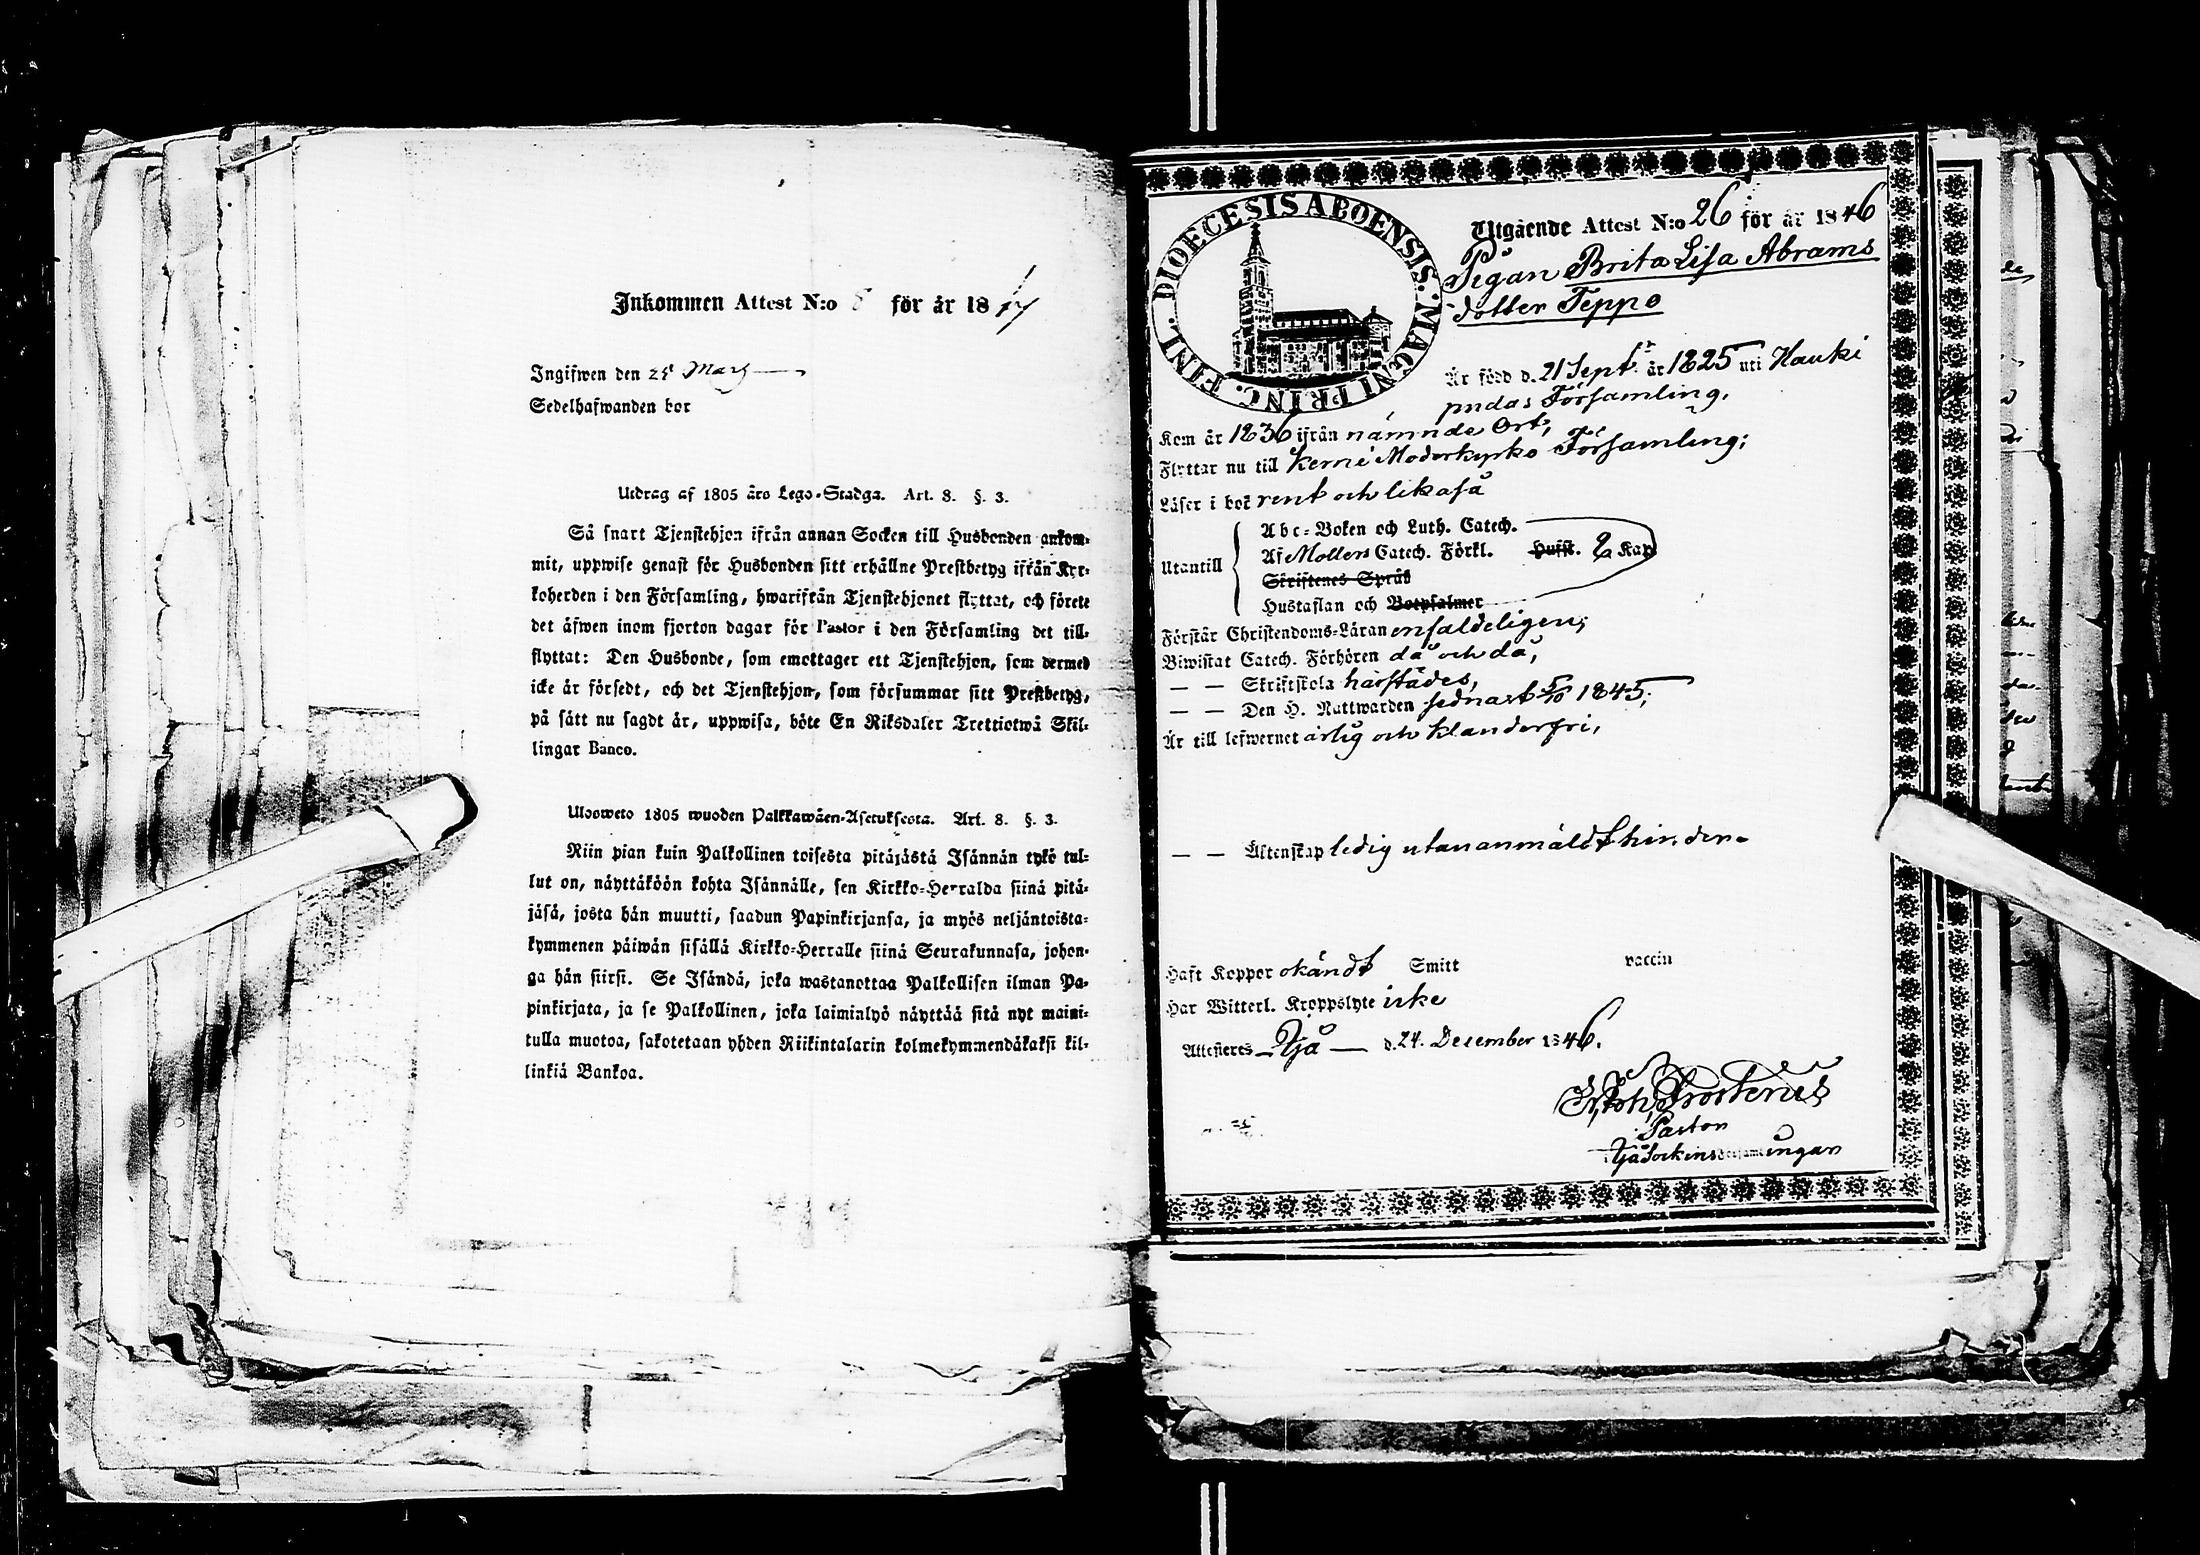 Inkommen Attest N:o 8 för år 1847
Ingifwen den 25 Mars
Sedelhafwanden bor
Utdrag af 1805 års Lego-Stadga. Art. 8. §. 3.
Så snart Tjenstehjon ifrån annan Socken till Husbonden ankom-
mit, uppwise genast för Husbonden sitt erhållne Prestbetyg ifrån Kyr-
koherden i den Församling, hwarifrån Tjenstehjonet flyttat, och förete
det äfwen inom fjorton dagar för Pastor i den Församling det till-
flyttat: Den Husbonde, som emottager ett Tjenstehjon, som dermed
icke är försedt, och det Tjenstehjon, som försummar sitt Prestbetyg,
på sätt nu sagdt är, uppwisa, böte En Riksdaler Trettiotwå Skil-
lingar Banco.
Ulosweto 1805 wuoden Palkkawäen-Asetuksesta. Art. 8. §. 3.
Niin pian kuin Palkollinen toisesta pitäjästä Isännän tykö tul-
lut on, näyttäköön kohta Isännälle, sen Kirkko-Herralda siinä pitä-
jäsä, josta hän muutti, saadun Papinkirjansa, ja myös neljäntoista-
kymmenen päiwän sisällä Kirkko-Herralle siinä Seurakunnasa, johon-
ga hän siirsi. Se Isändä, joka wastanottaa Palkollisen ilman Pa-
pinkirjata, ja se Palkollinen, joka laiminlyö näyttää sitä nyt maini-
tulla muotoa, sakotetaan yhden Riikintalarin kolmekymmendäkaksi kil-
linkiä Bankoa.
DIOECESIS ABOENSIS. MAGNI PRINC. FINL.
Utgående Attest N:o 26 för år 1846
Pigan Brita Lisa Abrams
dotter Teppo
Är född d. 21 Sept. år 1825 uti Hauki
pudas Församling.
Kom år 1836 ifrån nämnde Ort,
Flyttar nu till Kemi Moderkyrko Församling;
Läser i bok rent och likaså
Utantill
Abc-Boken och Luth. Catech.
Af Mollers Catech. Förkl. Hufst. 2 Kap
Skriftenes Språk
Hustaflan och Botpsalmer
Förstår Christendoms-Läran enfaldeligen;
Biwistat Catech. Förhören då och då,
— — Skriftskola härstädes,
— — Den H. Nattwarden sednast 5/10 1845;
Är till lefwernet ärlig och klanderfri,
— — Äktenskap ledig utan anmäldt hinder.
Haft Koppor okändt Smitt vaccin
Har Witterl. Kroppslyte icke
Attesteres Ijå d. 24. December 1846.
Er. Joh. Frosterus
Pastor
i Ijå Sockens Församlingar